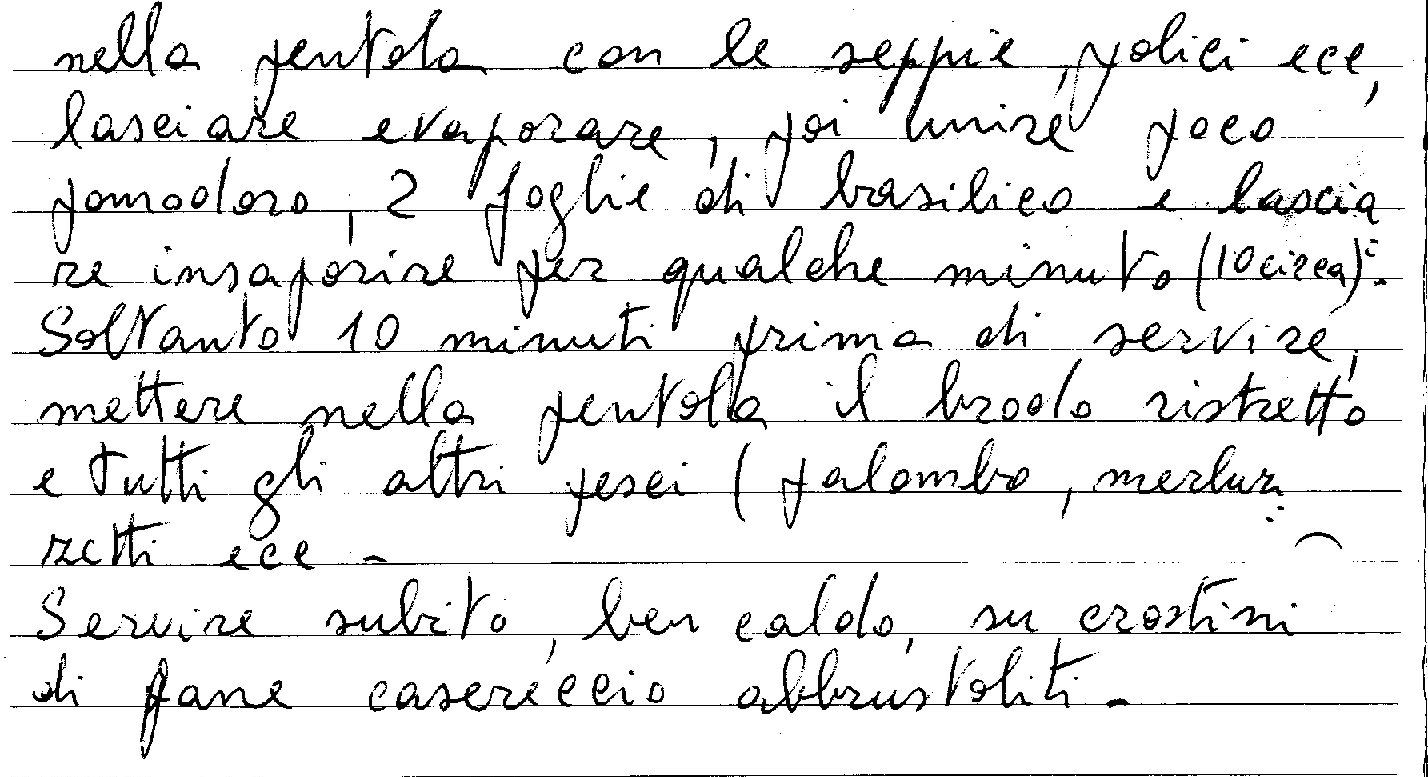 nella pentola con le seppie, polici ecc,
lasciare evaporare, poi unire poco
pomodoro, 2 foglie di basilico e lascia
re insaporire per qualche minuto (10 circa).
Soltanto 10 minuti prima di servire,
mettere nella pentola il brodo ristretto
e tutti gli altri pesci (palombo, merluz
zetti ecc -
Servire subito, ben caldo, su crostini
di pane casereccio abbrustoliti -